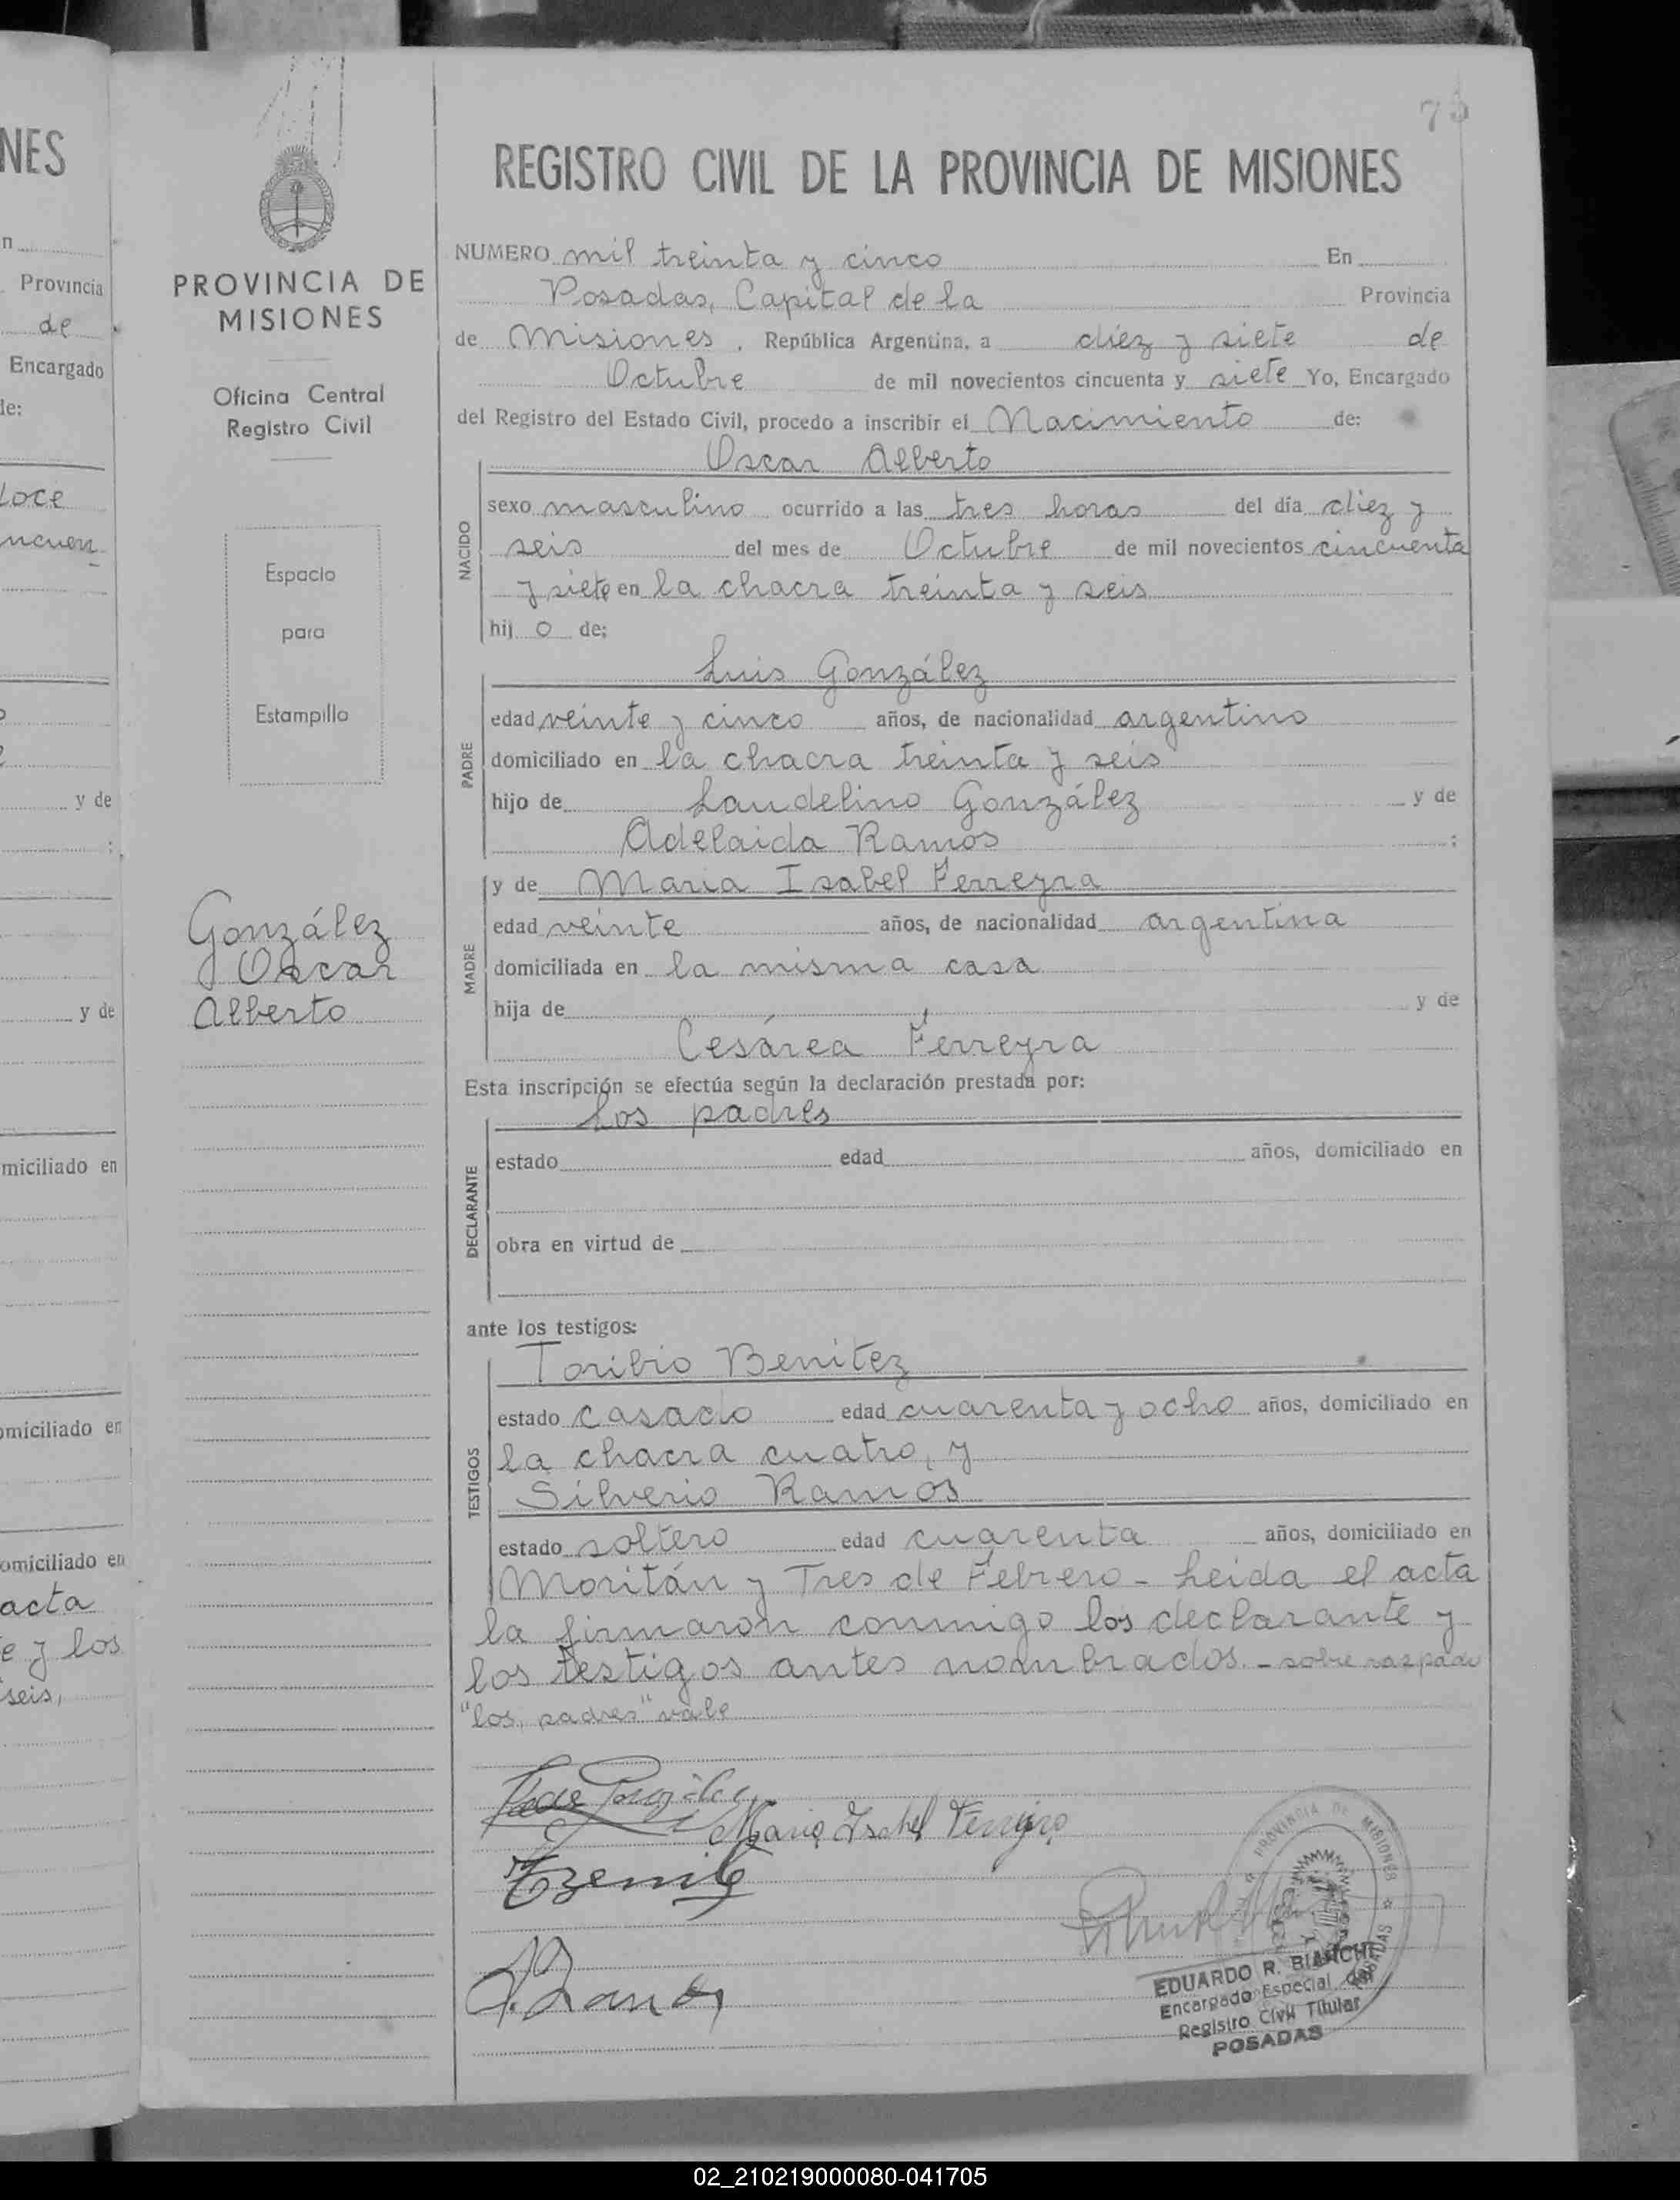 NES
n
Provincia
de
Encargado
de:
doce
ncuen
y de
y de
miciliado en
omiciliado en
omiciliado en
acta
e y los
seis,
PROVINCIA DE
MISIONES
Oficina Central
Registro Civil
Espacio
para
Estampillo
González
Oscar
Alberto
75
REGISTRO CIVIL DE LA PROVINCIA DE MISIONES
NUMERO mil treinta y cinco En
Posadas, Capital de la Provincia
de Misiones, República Argentina, a diez y siete de
Octubre de mil novecientos cincuenta y siete Yo, Encargado
del Registro del Estado Civil, procedo a inscribir el Nacimiento de:
Oscar Alberto
NACIDO
sexo masculino ocurrido a las tres horas del día diez y
seis del mes de Octubre de mil novecientos cincuenta
y siete en la chacra treinta y seis
hij o de;
Luis González
PADRE
edad veinte y cinco años, de nacionalidad argentino
domiciliado en la chacra treinta y seis
hijo de Laudelino González y de
Adelaida Ramos :
MADRE
y de Maria Isabel Ferreyra
edad veinte años, de nacionalidad argentina
domiciliada en la misma casa
hija de y de
Cesárea Ferreyra
Esta inscripción se efectúa según la declaración prestada por:
los padres
DECLARANTE
estado edad años, domiciliado en
obra en virtud de
ante los testigos:
TESTIGOS
Toribio Benitez
estado casado edad cuarenta y ocho años, domiciliado en
la chacra cuatro, y
Silverio Ramos
estado soltero edad cuarenta años, domiciliado en
Moritán y Tres de Febrero - Leida el acta
la firmaron conmigo los declarante y
los testigos antes nombrados. - sobre raspado
"los padres" vale
Maria Isabel Ferreyra
PROVINCIA DE MISIONES
POSADAS
EDUARDO R. BIANCHI
Encargado Especial del
Registro Civil Titular
POSADAS
02_210219000080-041705